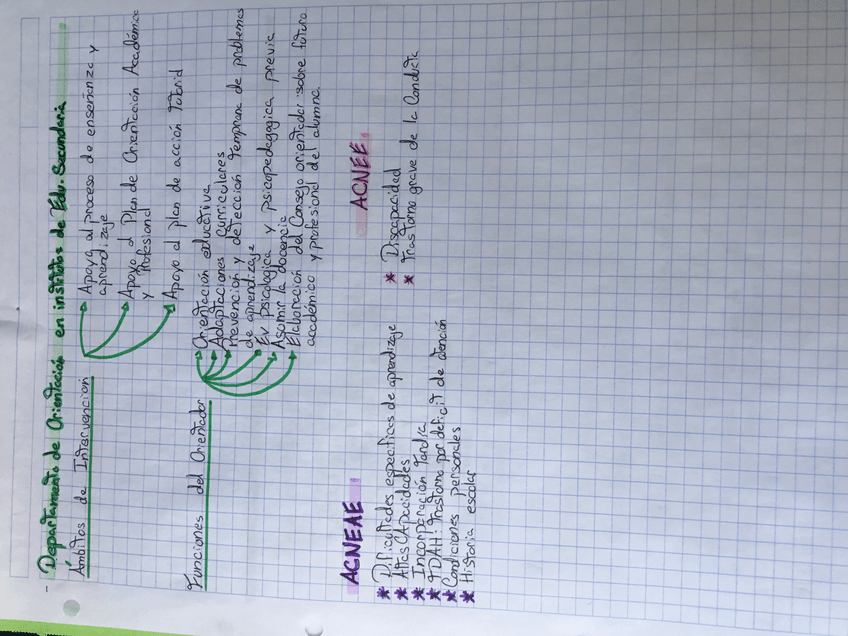 - Departamento de Orientación en institutos de Edu. Secundaria
Ámbitos de Intervención
Apoyo al proceso de enseñanza y
aprendizaje
Apoyo al Plan de Orientación Académica
y Profesional
Apoyo al plan de acción tutorial
Funciones del Orientador
Orientación educativa
Adaptaciones curriculares
Prevención y detección temprana de problemas
de aprendizaje
Ev psicologica y psicopedagogica previa
Asumir la docencia
Elaboración del Consejo orientador sobre futuro
académico y profesional del alumno.
ACNEAE
* Dificultades especificas de aprendizaje
* Altas CApacidades
* Incorporación Tardía
* TDAH: Trastorno por deficit de atención
* Condiciones personales
* Historia escolar
ACNEE
* Discapacidad
* Trastorno grave de la Conducta